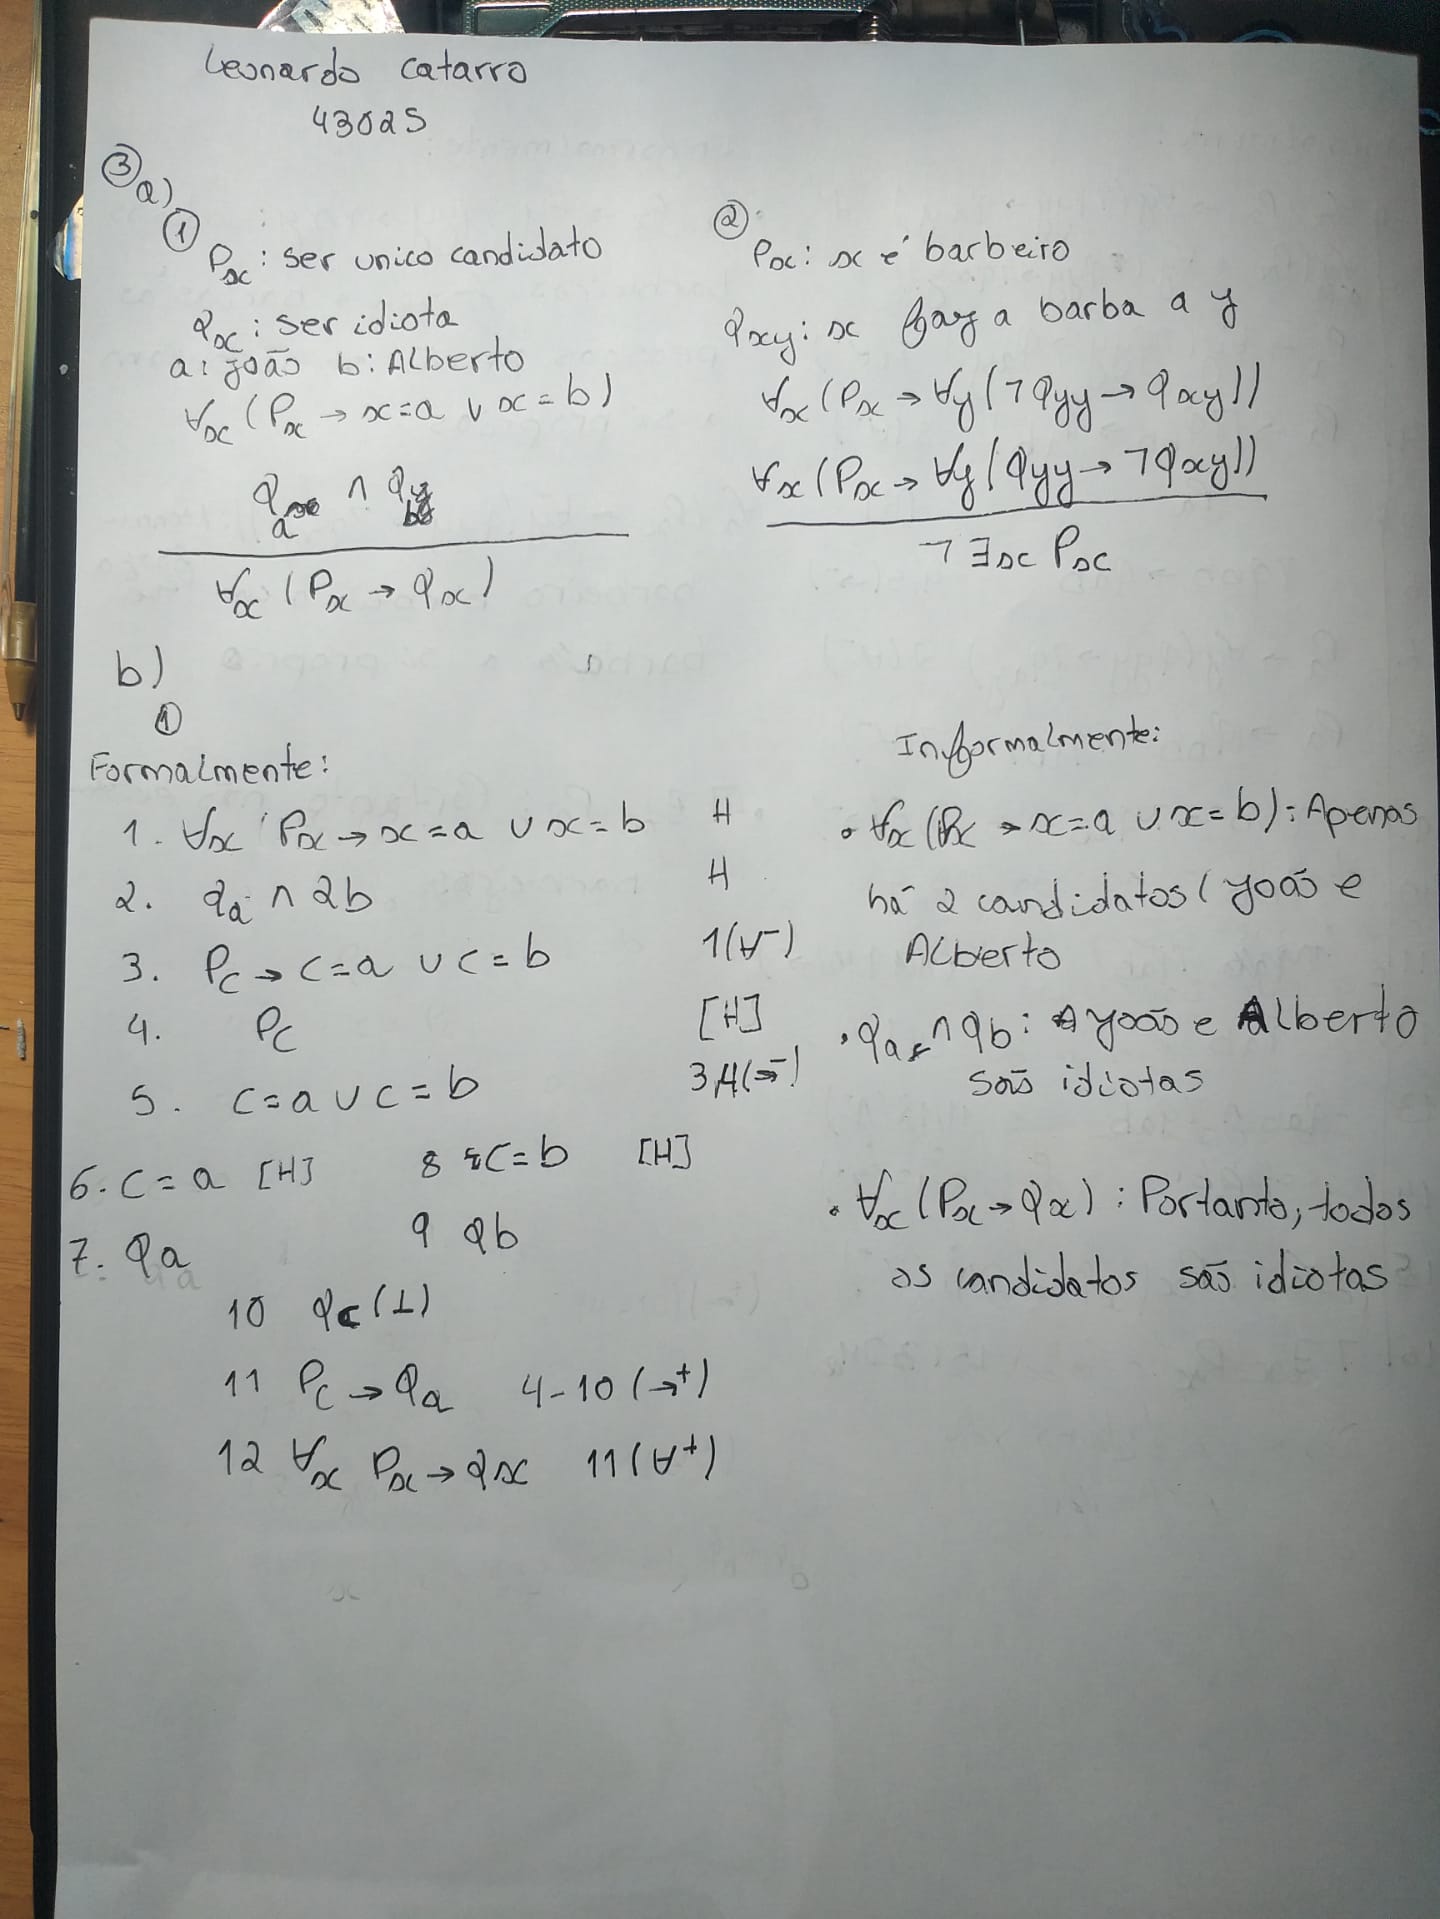 Leonardo Catarro
43025
③ a)
①
Px : ser unico candidato
Qx : ser idiota
a : João b : Alberto
∀x (Px → x = a ∨ x = b)
Qa ∧ Qb
∀x (Px → Qx)
②
Px : x é barbeiro
Qxy : x faz a barba a y
∀x (Px → ∀y (¬Qyy → Qxy))
∀x (Px → ∀y (Qyy → ¬Qxy))
¬∃x Px
b)
①
Formalmente:
1. ∀x Px → x = a ∨ x = b H
2. Qa ∧ Qb H
3. Pc → c = a ∨ c = b 1(∀⁻)
4. Pc [H]
5. c = a ∨ c = b 3,4(→⁻)
6. c = a [H] 8 c = b [H]
7. Qa 9 Qb
10 Qc (⊥)
11 Pc → Qa 4-10 (→⁺)
12 ∀x Px → Qx 11(∀⁺)
Informalmente:
• ∀x (Px → x = a ∨ x = b) : Apenas
há 2 candidatos (João e
Alberto
• Qa ∧ Qb : João e Alberto
são idiotas
• ∀x (Px → Qx) : Portanto, todos
os candidatos são idiotas